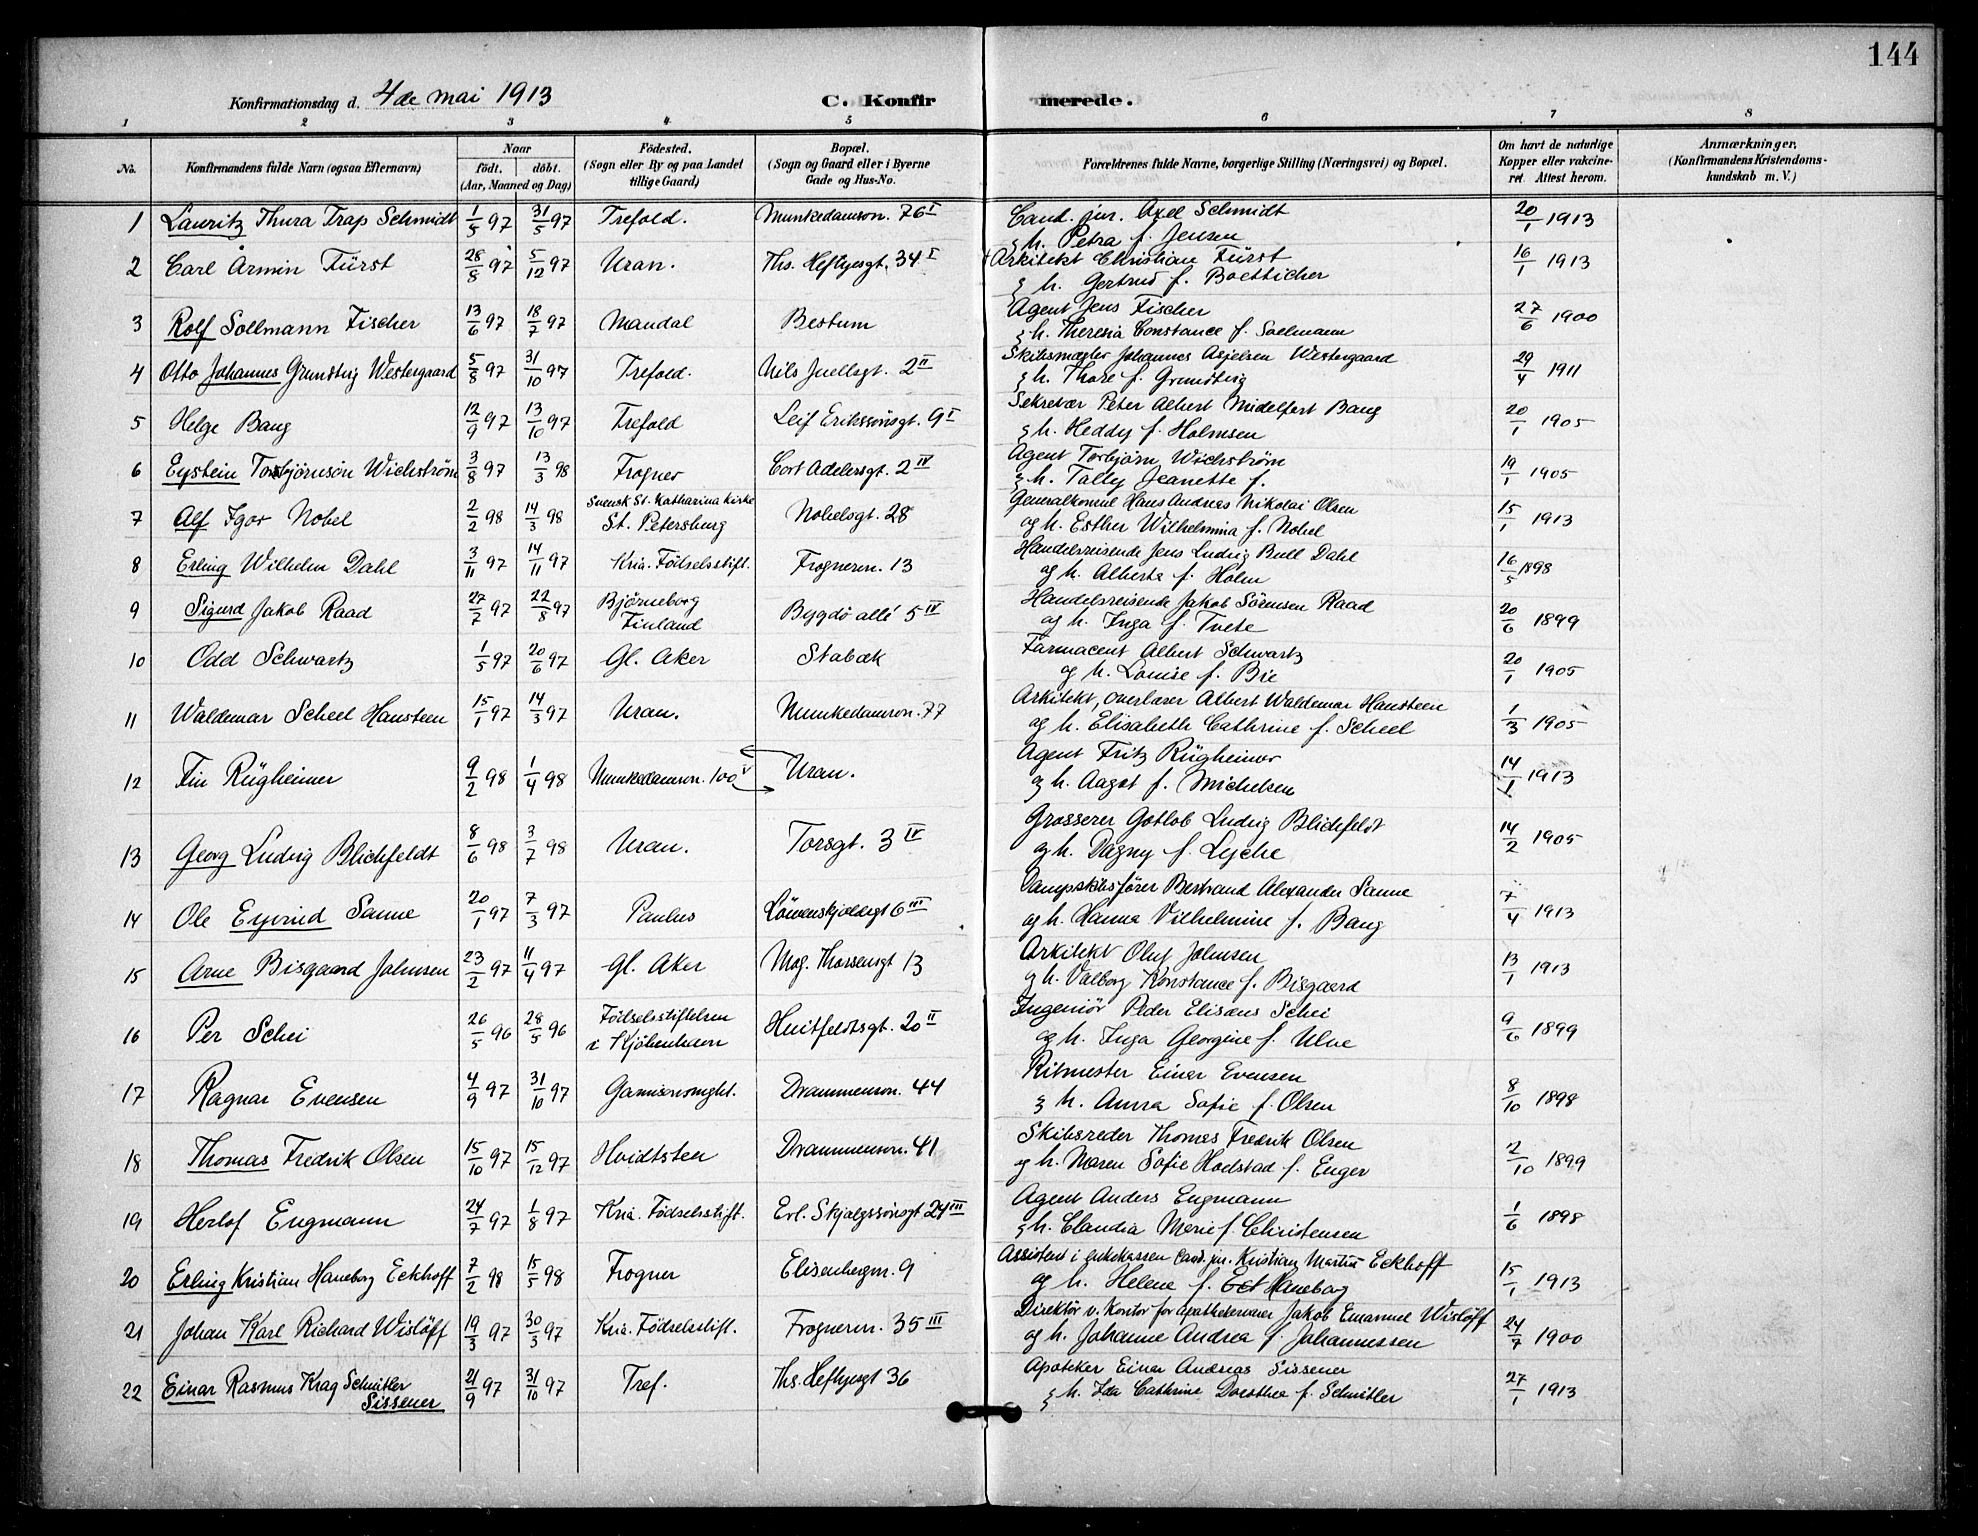 144
Konfirmationsdag d. 4de mai 1913 C. Konfirmerede.
1 2 3 4 5 6 7 8
No. Konfirmandens fulde Navn (ogsaa Efternavn) Naar födt. döbt. (Aar, Maaned og Dag) Födested. (Sogn eller By og paa Landet tillige Gaard) Bopæl. (Sogn og Gaard eller i Byerne Gade og Hus-No. Forældrenes fulde Navne, borgerlige Stilling (Næringsvei) og Bopæl. Om havt de naturlige Kopper eller vakcineret. Attest herom. Anmærkninger. (Konfirmandens Kristendomskundskab m. V.)
1 Lauritz Thura Trap Schmidt 1/5 97 31/5 97 Trefold. Munkedamsvn. 76 I Cand. jur. Axel Schmidt 20/1 1913
g h. Petra f. Jensen
2 Carl Armin Fürst 28/8 97 5/12 97 Uran. Ths. Heftyesgt. 34 I Arkitekt Christian Fürst 16/1 1913
g h. Gertrud f. Boetticher
3 Rolf Sollmann Fischer 13/6 97 18/7 97 Mandal Bestum Agent Jens Fischer 27/6 1900
g h. Theresia Constance f. Sollmann
4 Otto Johannes Grundtvig Westergaard 5/8 97 31/10 97 Trefold. Nils Juellsgt. 2 II Skibsmægler Johannes Westergaard 29/4 1911
g h. Thore f. Grundtvig
5 Helge Bang 12/9 97 13/10 97 Trefold Leif Erikssönsgt. 9 I Sekretær Peter Albert Midelfert Bang 20/1 1905
g h. Heddy f. Holmsen
6 Eystein Torbjörnsön Wichström 3/8 97 13/3 98 Frogner Cort Adelersgt. 2 IV Agent Torbjörn Wichström 19/1 1905
g h. Tally Jeanette f.
7 Alf Igor Nobel 2/2 98 14/3 98 Svensk St. Katharina Kirke St. Petersburg Nobelsgt. 28 Generalkonsul Hans Andreas Nikolai Olsen 15/1 1913
og h. Esther Wilhelmina f. Nobel
8 Erling Wilhelm Dahl 3/11 97 14/11 97 Kria. Födselsstift. Frognervn. 13 Handelsreisende Jens Ludvig Bull Dahl 16/5 1898
og h. Alberta f. Holm
9 Sigurd Jakob Raad 27/7 97 22/8 97 Björneborg Finland Bygdö allé 5 IV Handelsreisende Jakob Sörensen Raad 20/6 1899
og h. Inga f. Tvete
10 Odd Schwartz 1/5 97 20/6 97 Gl. Aker Stabæk Farmaceut Albert Schwartz 20/1 1905
og h. Louise f. Bie
11 Waldemar Scheel Hansteen 15/1 97 14/3 97 Uran. Munkedamsvn. 77 Arkitekt, overlærer Albert Waldemar Hansteen 1/3 1905
og h. Elisabeth Cathrine f. Scheel
12 Fin Rügheimer 9/2 98 1/4 98 Munkedamsvn. 100 V Uran. Agent Fritz Rügheimer 14/1 1913
og h. Aagot f. Michelsen
13 Georg Ludvig Blichfeldt 8/6 98 3/7 98 Uran. Torsgt. 3 IV Grosserer Gotlob Ludvig Blichfeldt 14/2 1905
og h. Dagny f. Lyche
14 Ole Eyvind Sanne 20/1 97 7/3 97 Paulus Lövenskjoldsgt 6 III Dampskibsförer Bertrand Alexander Sanne 7/4 1913
og h. Hanna Vilhelmine f. Bang
15 Arne Bisgaard Johnsen 23/2 97 11/4 97 Gl. Aker Mog. Thorsensgt 13 Arkitekt Oluf Johnsen 13/1 1913
g h. Valborg Konstance f. Bisgaard
16 Per Schei 26/5 96 28/5 96 Födselsstiftelsen i Kjöbenhavn Huitfeldtsgt. 20 II Ingeniör Peder Elisæus Schei 9/6 1899
og h. Inga Georgine f. Ulve
17 Ragnar Evensen 4/9 97 31/10 97 Garnisonsmght. Drammensvn. 44 Ritmester Einar Evensen 8/10 1898
g h. Anna Sofie f. Olsen
18 Thomas Fredrik Olsen 15/10 97 15/12 97 Hvidtsten Drammensvn. 41 Skibsreder Thomas Fredrik Olsen 2/10 1899
og h. Maren Sofie Hodstad f. Enger
19 Herlof Engmann 24/7 97 1/8 97 Kria. Födselsstift. Erl. Skjalgssönsgt 24 III Agent Anders Engmann 1/6 1898
g h. Claudia Marie f. Christensen
20 Erling Kristian Haneborg Eckhoff 7/2 98 15/5 98 Frogner Elisenbergvn. 9 Assistent i enkekassen Cand. jur. Kristian Martin Eckhoff 15/1 1913
og h. Helene f. Haneborg
21 Johan Karl Richard Wislöff 19/3 97 30/3 97 Kria. Födselsstift. Frognervn. 35 III Direktör v. Kontor for apothekervarer Jakob Emanuel Wislöff 24/7 1900
og h. Johanne Andrea f. Johannessen
22 Einar Rasmus Krag Schnitler Sissener 21/9 97 31/10 97 Tref. Ths. Heftyesgt 36 Apoteker Einar Andreas Sissener 27/1 1913
g h. Ida Cathrine Dorothea f. Schnitler